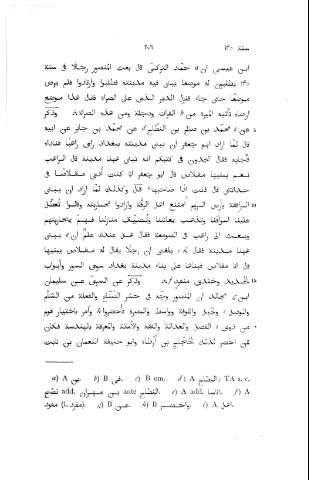 سنة ١٤٥ ٢٠٩
ابن عيسى ان حمّاد التركىّ قال بعث المنصور رجلا فى سنة
١٤٥ يطلبون له موضعا يبنى فيه مدينته فطلبوا وارتادوا فلم يرض
موضعا حتى جاء فنزل الدير الذى على الصراة فقال هذا موضع
ارضاه تأتيه الميرة من الفرات ودجلة ومن هذه الصراة، وذكر
عن محمّد بن صالح بن النطّاح عن محمّد بن جابر عن ابيه
قال لمّا اراد ابو جعفر ان يبنى مدينته ببغداد راى راهبا فناداه
فاجابه فقال تجدون فى كتبكم انه تبنى هاهنا مدينة قال الراهب
نعم يبنيها مقلاص قال ابو جعفر انا كنت أدعى مقلاصا فى
حداثتى قال فانت اذا صاحبها، قال وكذلك لمّا اراد ان يبنى
الرافقة بأرض الروم امتنع اهل الرقّة وارادوا محاربته وقالوا تُعطّل
علينا اسواقنا وتذهب بمعائشنا وتُضيّق منازلنا فهمّ بمحاربتهم
وبعث الى راهب فى الصومعة فقال هل عندك علم ان يبنى
هاهنا مدينة فقال له بلغنى ان رجلا يقال له مقلاص يبنيها
قال انا مقلاص فبناها على بناء مدينة بغداد سوى السور وابواب
الحديد وخندق منفرد، وذكر عن السرىّ عن سليمان
ابن مجالد ان المنصور وجّه فى حشر الصنّاع والفعلة من الشأم
والموصل والجبل والكوفة وواسط والبصرة فأحضروا وأمر باختيار قوم
من ذوى الفضل والعدالة والفقه والأمانة والمعرفة بالهندسة فكان
ممّن احضر لذلك الحجّاج بن أرطاة وابو حنيفة النعمان بن ثابت